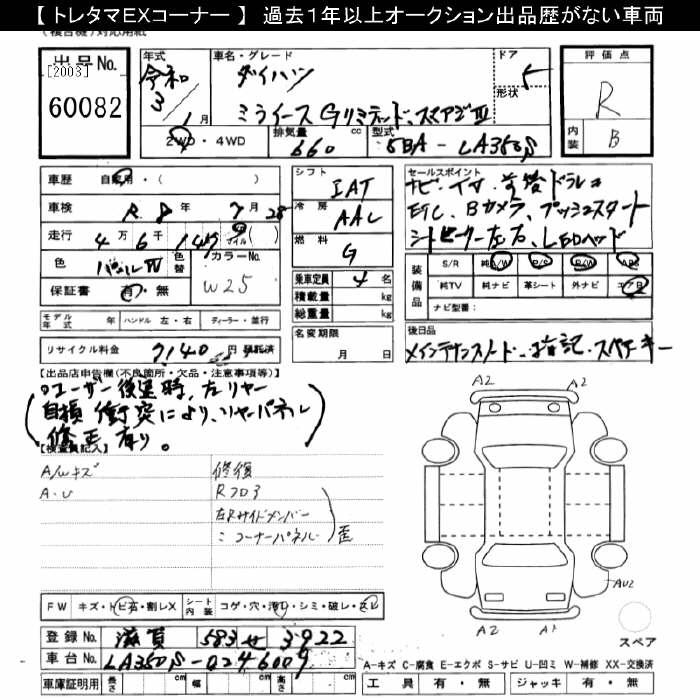 【 トレタマEXコーナー 】 過去1年以上オークション出品歴がない車両
出品No.
[2003]
60082
年式
令和
3/1月
車名・グレード
ダイハツ
ミライース Gリミテッド、スマアシⅢ
ドア
形状
5
2WD・4WD
排気量
660 cc
型式
5BA-LA350S
評価点
R
内装
B
車歴 自家用・( )
車検 R8年7月28日
走行 4万6千149 マイル( )
色
パールW
色替
カラーNo.
W25
保証書 有・無
モデル年式 年 ハンドル 左・右 ディーラー・並行
リサイクル料金 7140円 預託済
シフト
IAT
冷房
AAC
燃料
G
乗車定員 4名
積載量 kg
総重量 kg
名変期限
月 日
セールスポイント
ナビ・TV・前後ドラレコ
ETC、Bカメラ、プッシュスタート
シートヒーター左右、LEDヘッド
装備品
S/R 純A/W P/S P/W ABS
純TV 純ナビ 革シート 外ナビ エアB
ナビ型番:
後日品
メインテナンスノート、取説、スペアキー
【出品店申告欄(不良箇所・欠品・注意事項等)】
ユーザー後退時、左リヤー
自損衝突により、リヤーパネル
修正有り。
【検査員記入】
A/Wキズ
A・U
修復
Rフロア
左Rサイドメンバー
〃コーナーパネル
歪
FW キズ・トビ石・割レX
シート内装 コゲ・穴・汚レ・シミ・破レ・スレ
登録No. 滋賀 583 せ 3922
車台No. LA350S-0246009
車庫証明用 長さ cm 幅 cm 高さ cm
A2
A2
AU2
A2
A1
スペア
A-キズ C-腐食 E-エクボ S-サビ U-凹ミ W-補修 XX-交換済
工具 有・無 ジャッキ 有・無